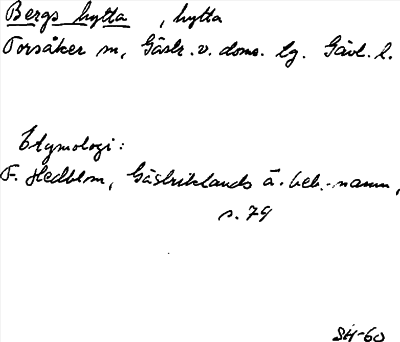 Bergs hytta , hytta
Torsåker sn, Gästr. v. doms. tg. Gävl. l.
Etymologi:
F. Hedblom, Gästriklands ä. beb.-namn,
s. 79
SH-60